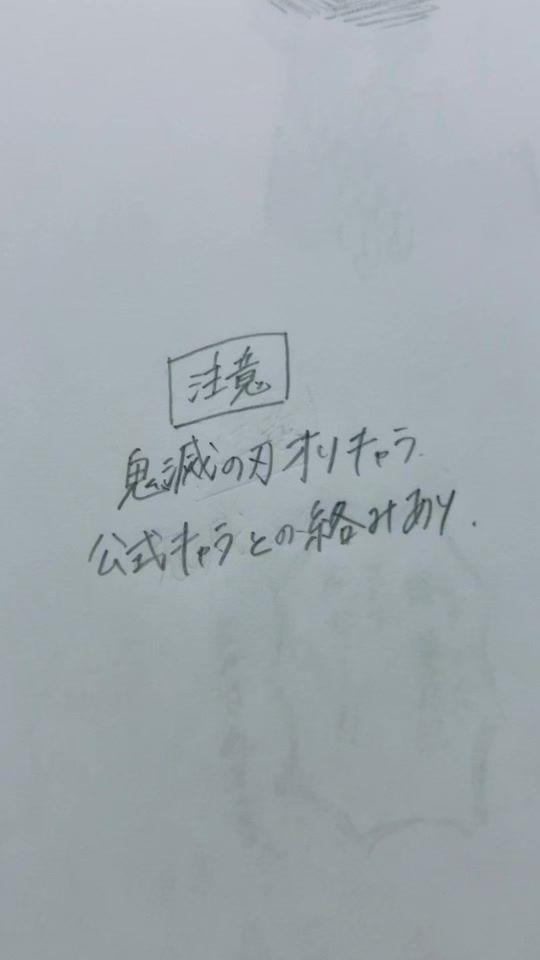 注意
鬼滅の刃オリキャラ.
公式キャラとの絡みあり.